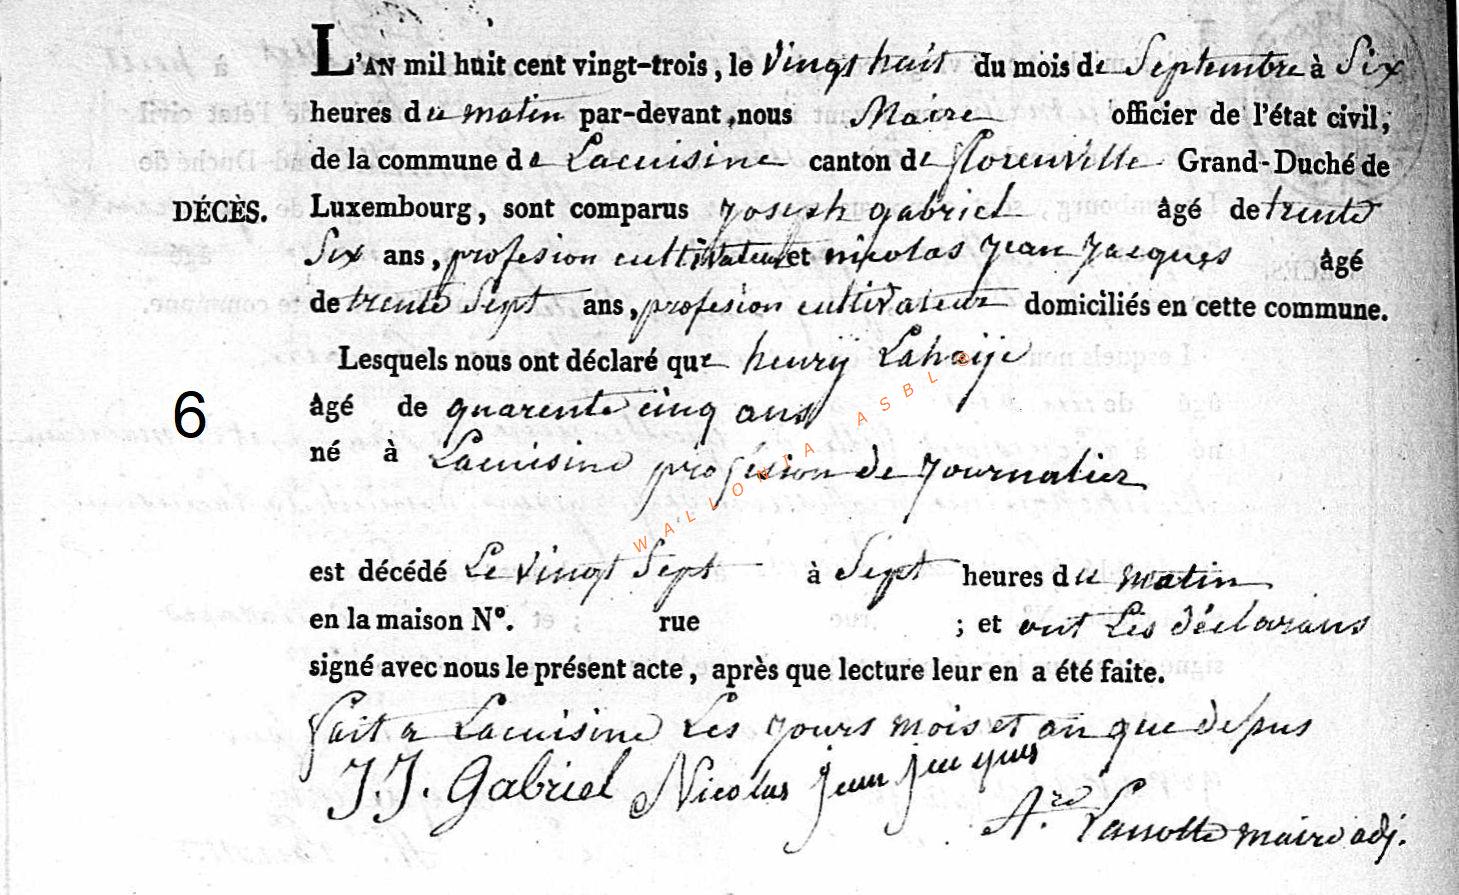 L'AN mil huit cent vingt-trois, le vingt huit du mois de Septembre à Six
heures du matin par-devant, nous Maire officier de l'état civil,
de la commune de Lacuisine canton de florenville Grand-Duché de
DÉCÈS. Luxembourg, sont comparus joseph gabriel âgé de trente
Six ans, profesion cultivateur et nicolas jean jacques âgé
de trente Sept ans, profesion cultivateur domiciliés en cette commune.
Lesquels nous ont déclaré que henrÿ Lahaije
6 âgé de quarente cinq ans
né à Lacuisine profesion de journalier
WALLONIA ASBL ©
est décédé Le vingt Sept à Sept heures du matin
en la maison N°. rue ; et ont Les déclarans
signé avec nous le présent acte, après que lecture leur en a été faite.
fait a Lacuisine Les jours mois et an que depus
J.J. Gabriel Nicolas jean jacques
A.rd Lanotte maire adj.